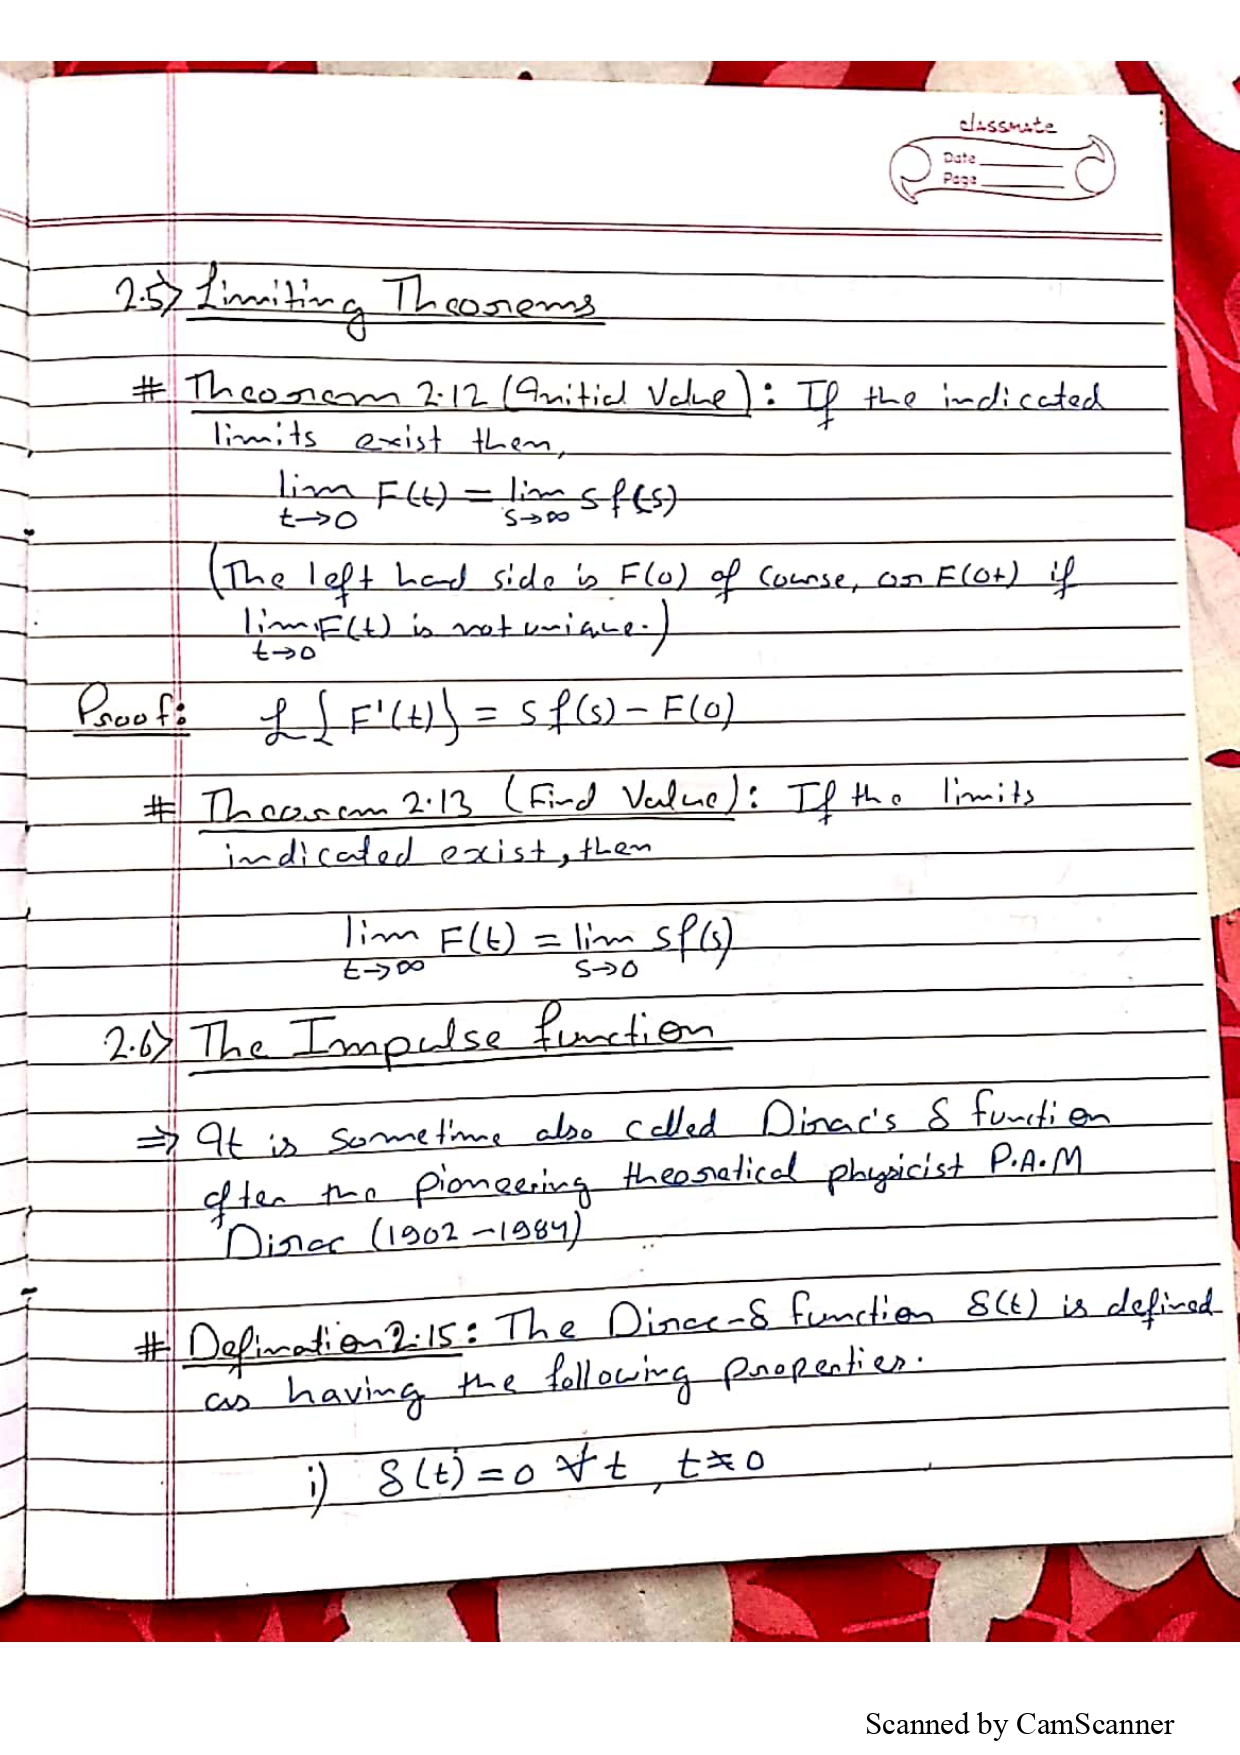 classmate
Date
Page
2.5) Limiting Theorems
# Theorem 2.12 (Initial Value): If the indicated
limits exist then,
lim F(t) = lim sf(s)
t→0 s→∞
(The left had side is F(0) of course, or F(0+) if
lim F(t) is not unique.)
t→0
Proof: £{F'(t)} = sf(s) - F(0)
# Theorem 2.13 (Find Value): If the limits
indicated exist, then
lim F(t) = lim sf(s)
t→∞ s→0
2.6) The Impulse function
⇒ It is sometime also called Dirac's δ function
after the pioneering theoretical physicist P.A.M
Dirac (1902-1984)
# Defination 2.15: The Dirac-δ function δ(t) is defined
as having the following properties.
i) δ(t) = 0 ∀ t, t≠0
Scanned by CamScanner